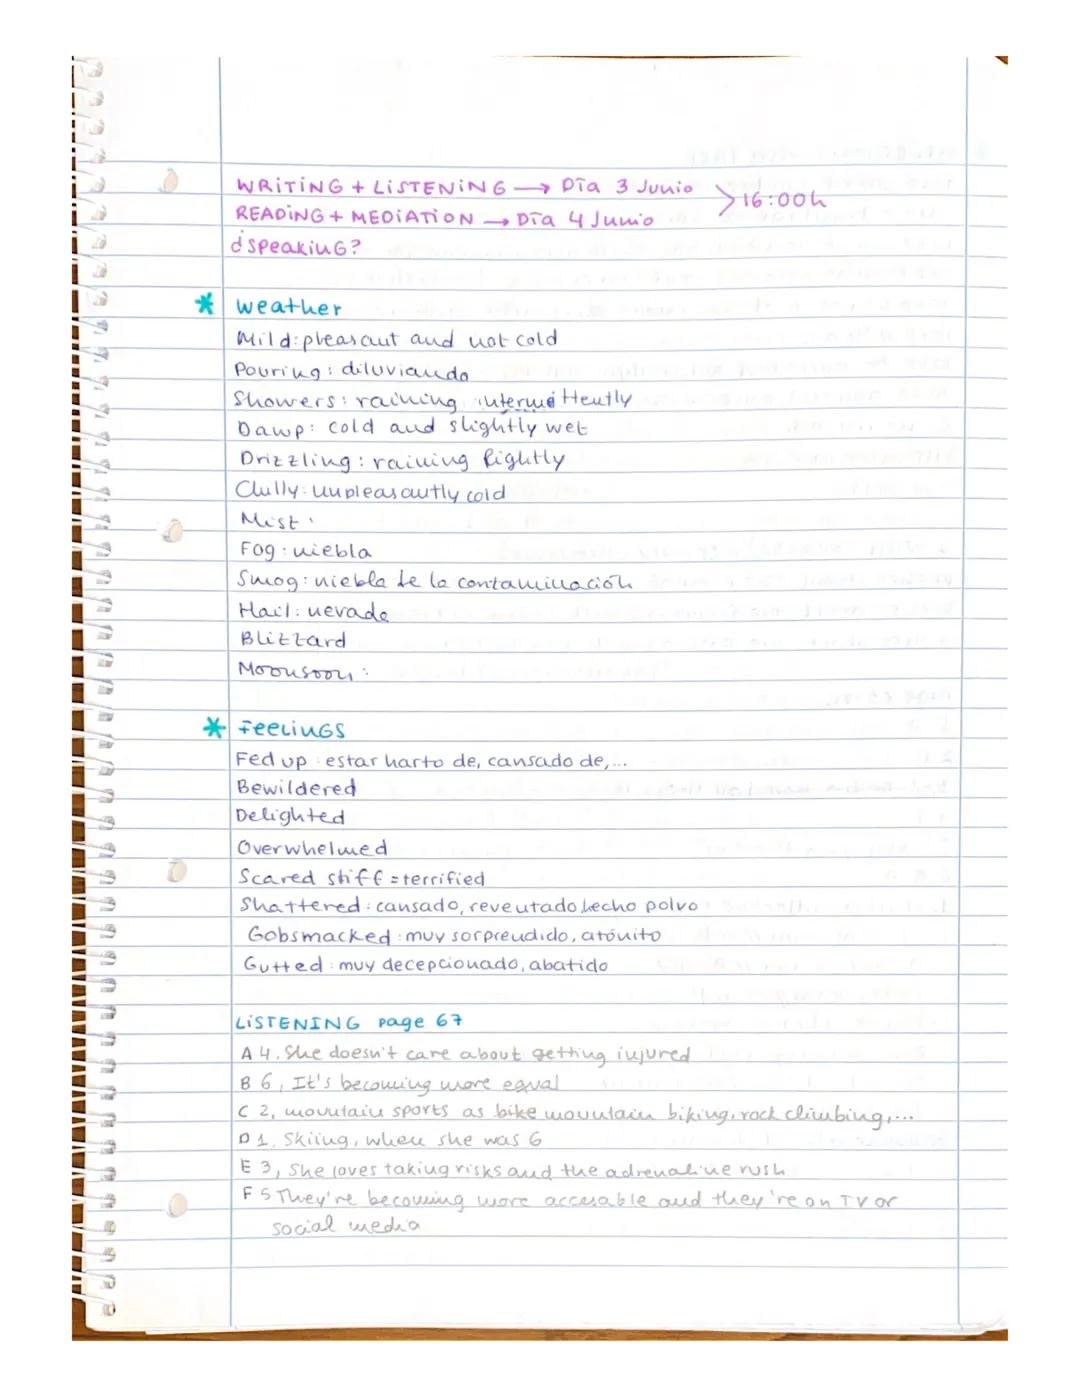 WRITING + LISTENING → Día 3 Junio
> 16:00h
READING + MEDIATION → Día 4 Junio
¿SpeakinG?
* weather
Mild: pleasant and not cold
Pouring: diluviando
Showers: raining intermittently
Damp: cold and slightly wet
Drizzling: raining lightly
Chilly: unpleasantly cold
Mist:
Fog: niebla
Smog: niebla de la contaminación
Hail: nevada
Blizzard
Moonsoon:
* FeelinGS
Fed up: estar harto de, cansado de,...
Bewildered
Delighted
Overwhelmed
Scared stiff = terrified
Shattered: cansado, reventado, hecho polvo
Gobsmacked: muy sorprendido, atónito
Gutted: muy decepcionado, abatido
LISTENING page 67
A 4. She doesn't care about getting injured
B 6, It's becoming more equal
C 2, mountain sports as bike mountain biking, rock climbing,...
D 1. Skiing, when she was 6
E 3, She loves taking risks and the adrenaline rush
F 5 They're becoming more accesable and they're on TV or
social media